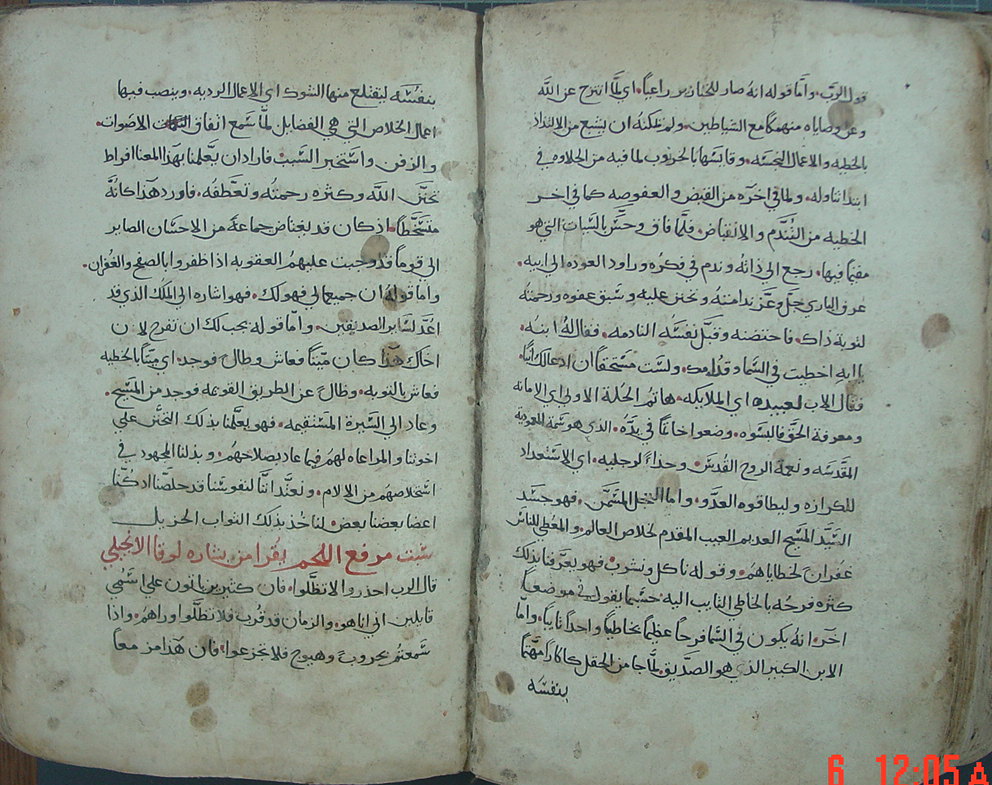 قول الرب. واما قوله انه صار للخنازير راعيا. اي لما انتزح عن الله
وعن وصاياه منهمكا مع الشياطين. ولم يمكنه ان يشبع من الالتذاذ
بالخطيه والاعمال النجسه. وقايسها بالخرنوب لما فيه من الحلاوه في
ابتدا تناوله. ولما في اخره من القبض والعفوصه كما في اخر
الخطيه من التندم والانقباض. فلما فاق وحس بالسيات التي هو
مقيما فيها. رجع الي ذاته وندم في فكره وراود العوده الي ابيه.
عرف الباري جل وعز ندامته وتحنن عليه وسبق عفوه ورحمته
لتوبة ذاك. فاحتضنه وقبل نفسه النادمه. فقال له ابنه.
يا ابه اخطيت في السما وقدامك. ولست مستحقا ان ادعا لك ابنا.
فقال الاب لعبيده اي الملايكه. هاتم الحلة الاولي اي الامانه
ومعرفة الحق فالبسوه. وضعوا خاتما في يده. الذي هو سمة المعمودية
المقدسه ونعمة الروح القدس. وحذاءً لرجليه. اي الاستعداد
للكرازه وليطا قوه العدو. واما العجل المسمن. فهو جسد
السيد المسيح العديم العيب المقدم لخلاص العالم. والمعطي للناس
غفران لخطاياهم. وقوله ناكل ونشرب فهو يعرفنا بذلك
كثره فرحه بالخاطي التايب اليه حسبما يقول في موضعا
اخر. انه يكون في السما فرحا عظيما بخاطيا واحدا تايبا. واما
الابن الكبير الذي هو الصديق. لما جا من الحقل كانكان مهتما
بنفسه
بنفسه ليقتلع منها الشوك اي الاعمال الرديه. وينصب فيها
اعمال الخلاص التي هي الفضايل لما سمع اتفاق الاصوات.
والزفن واستخبر السبب فاراد ان يعلمنا بهذا المعنا افراط
تحنن الله وكثره رحمته وتعطفه. فاورد هذا كانه
متسخطا. اذ كان قد يغتاض جماعه من الاحسان الصابر
الي قوما قد وجبت عليهم العقوبه اذا ظفروا بالصفح والغفران.
واما قوله ان جميع مالي فهو لك. فهو اشاره الي الملك الذي قد
اعد لساير الصديقين. واما قوله يجب لك ان تفرح لان
اخاك هذا كان ميتا فعاش وضال فوجد. اي ميتا بالخطيه
فعاش بالتوبه. وضال عن الطريق القويمه فوجد من المسيح.
وعاد الي السيرة المستقيمه. فهو يعلمنا بذلك التحنن علي
اخوتنا والمراعاه لهم فيما عاد بصلاحهم. وبذلنا المجهود في
استخلاصهم من الالام. ونعتد اننا لنفوسنا قد خلصنا اذ كنا
اعضا بعضنا بعض. لناخذ بذلك الثواب الجزيل
سبت مرفع اللحم يقرا من بشاره لوقا الانجيلي
قال الرب احذروا لا تضلوا. فان كثيرين ياتون علي اسمي
قايلين اني انا هو. والزمان قد قرب فلا تضلوا وراهم. واذا
سمعتم بحروب وهيوج فلا تجزعوا. فان هذا مزمعا
6 12:05 A